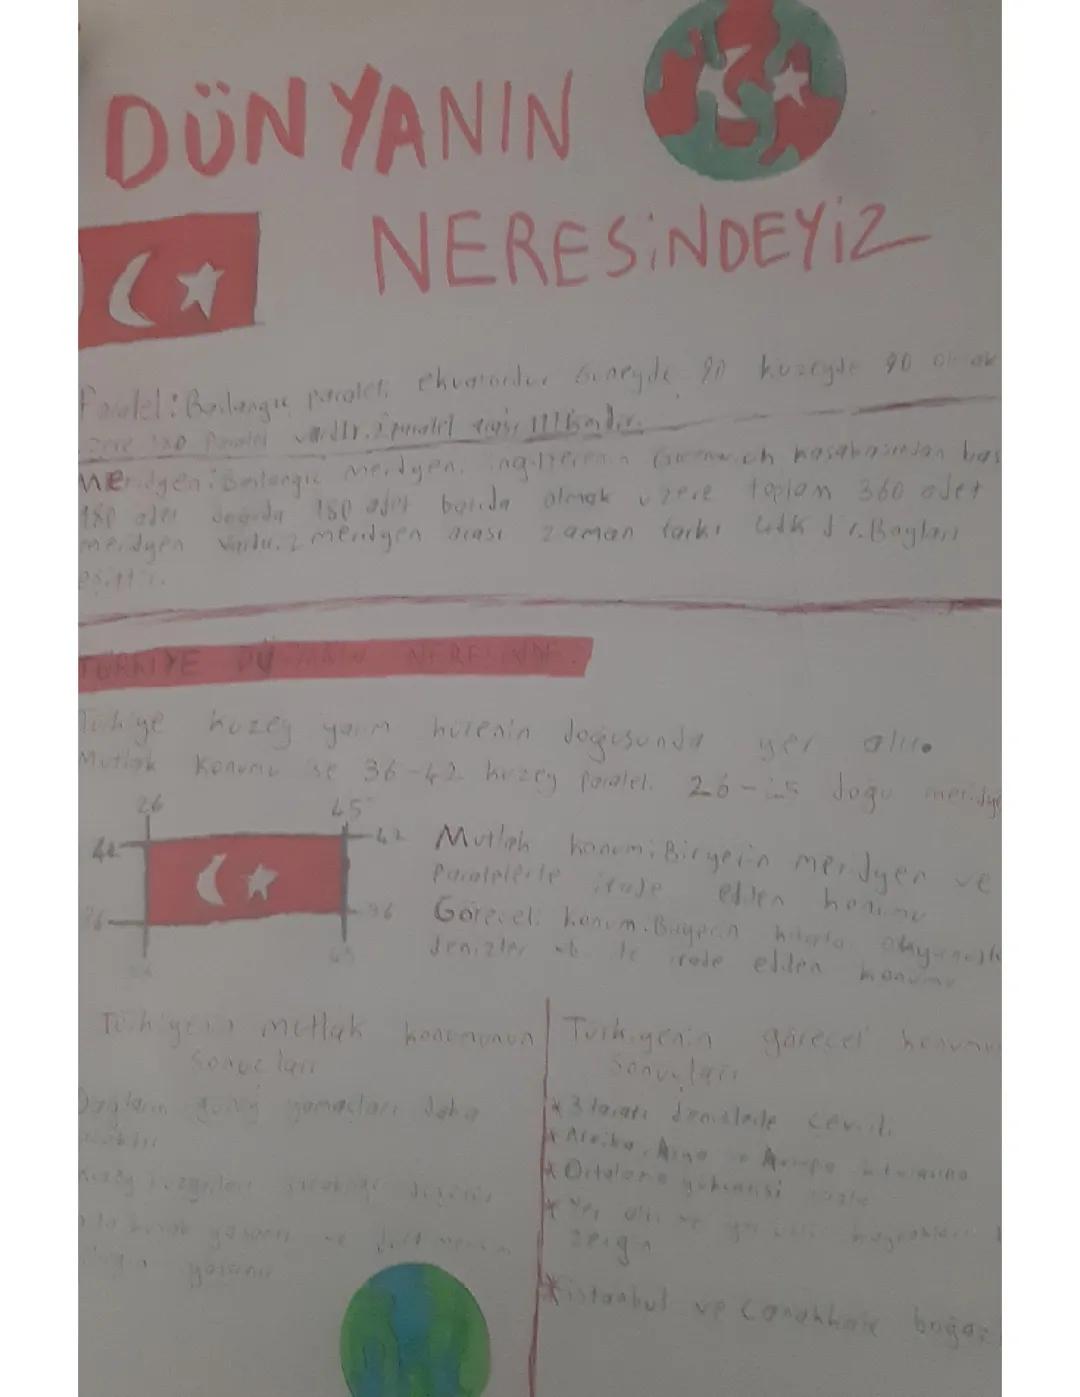 DÜNYANIN
NERESİNDEYİZ
Paralel: Başlangıç paraleli ekvatordur Güneyde 90 kuzeyde 90 olmak
üzere 180 Paralel vardır. 2 paralel arası 111 kmdir.
Meridyen: Başlangıç meridyen. ingilterenin Greenwich kasabasından baş
180 adet doğuda 180 adet batıda olmak üzere toplam 360 adet
meridyen vardır. 2 meridyen arası zaman farkı 4dk dır. Boyları
eşittir.
TÜRKİYE DÜNYANIN NERESİNDE
Türkiye kuzey yarım kürenin doğusunda yer alır.
Mutlak konumu ise 36-42 kuzey paralel. 26-45 doğu meridye
26 45
42 42
Mutlak konum: Bir yerin meridyen ve
Paralelerle ifade edden konumu
36 36
Göreceli konum. Biryerin kıtala okyanusla
denizler vb. ile ifade edden konumu
45
Türkiyenin mutlak konumunun
Sonuçları
Dağların güney yamaçları daha
Kuzey rüzgarları sıcaklığı düşürür
kuşak yaşanır ve dört mevsim
yaşanır
Türkiyenin görecel konumu
Sonuçları
* 3 tarafı denizlerle çevrili
* Afrika, Asya ve Avrupa
* Ortalama yükseltisi fazla
* Yer altı ve yer üstü kaynakları
zengin
* istanbul ve Çanakkale boğaz